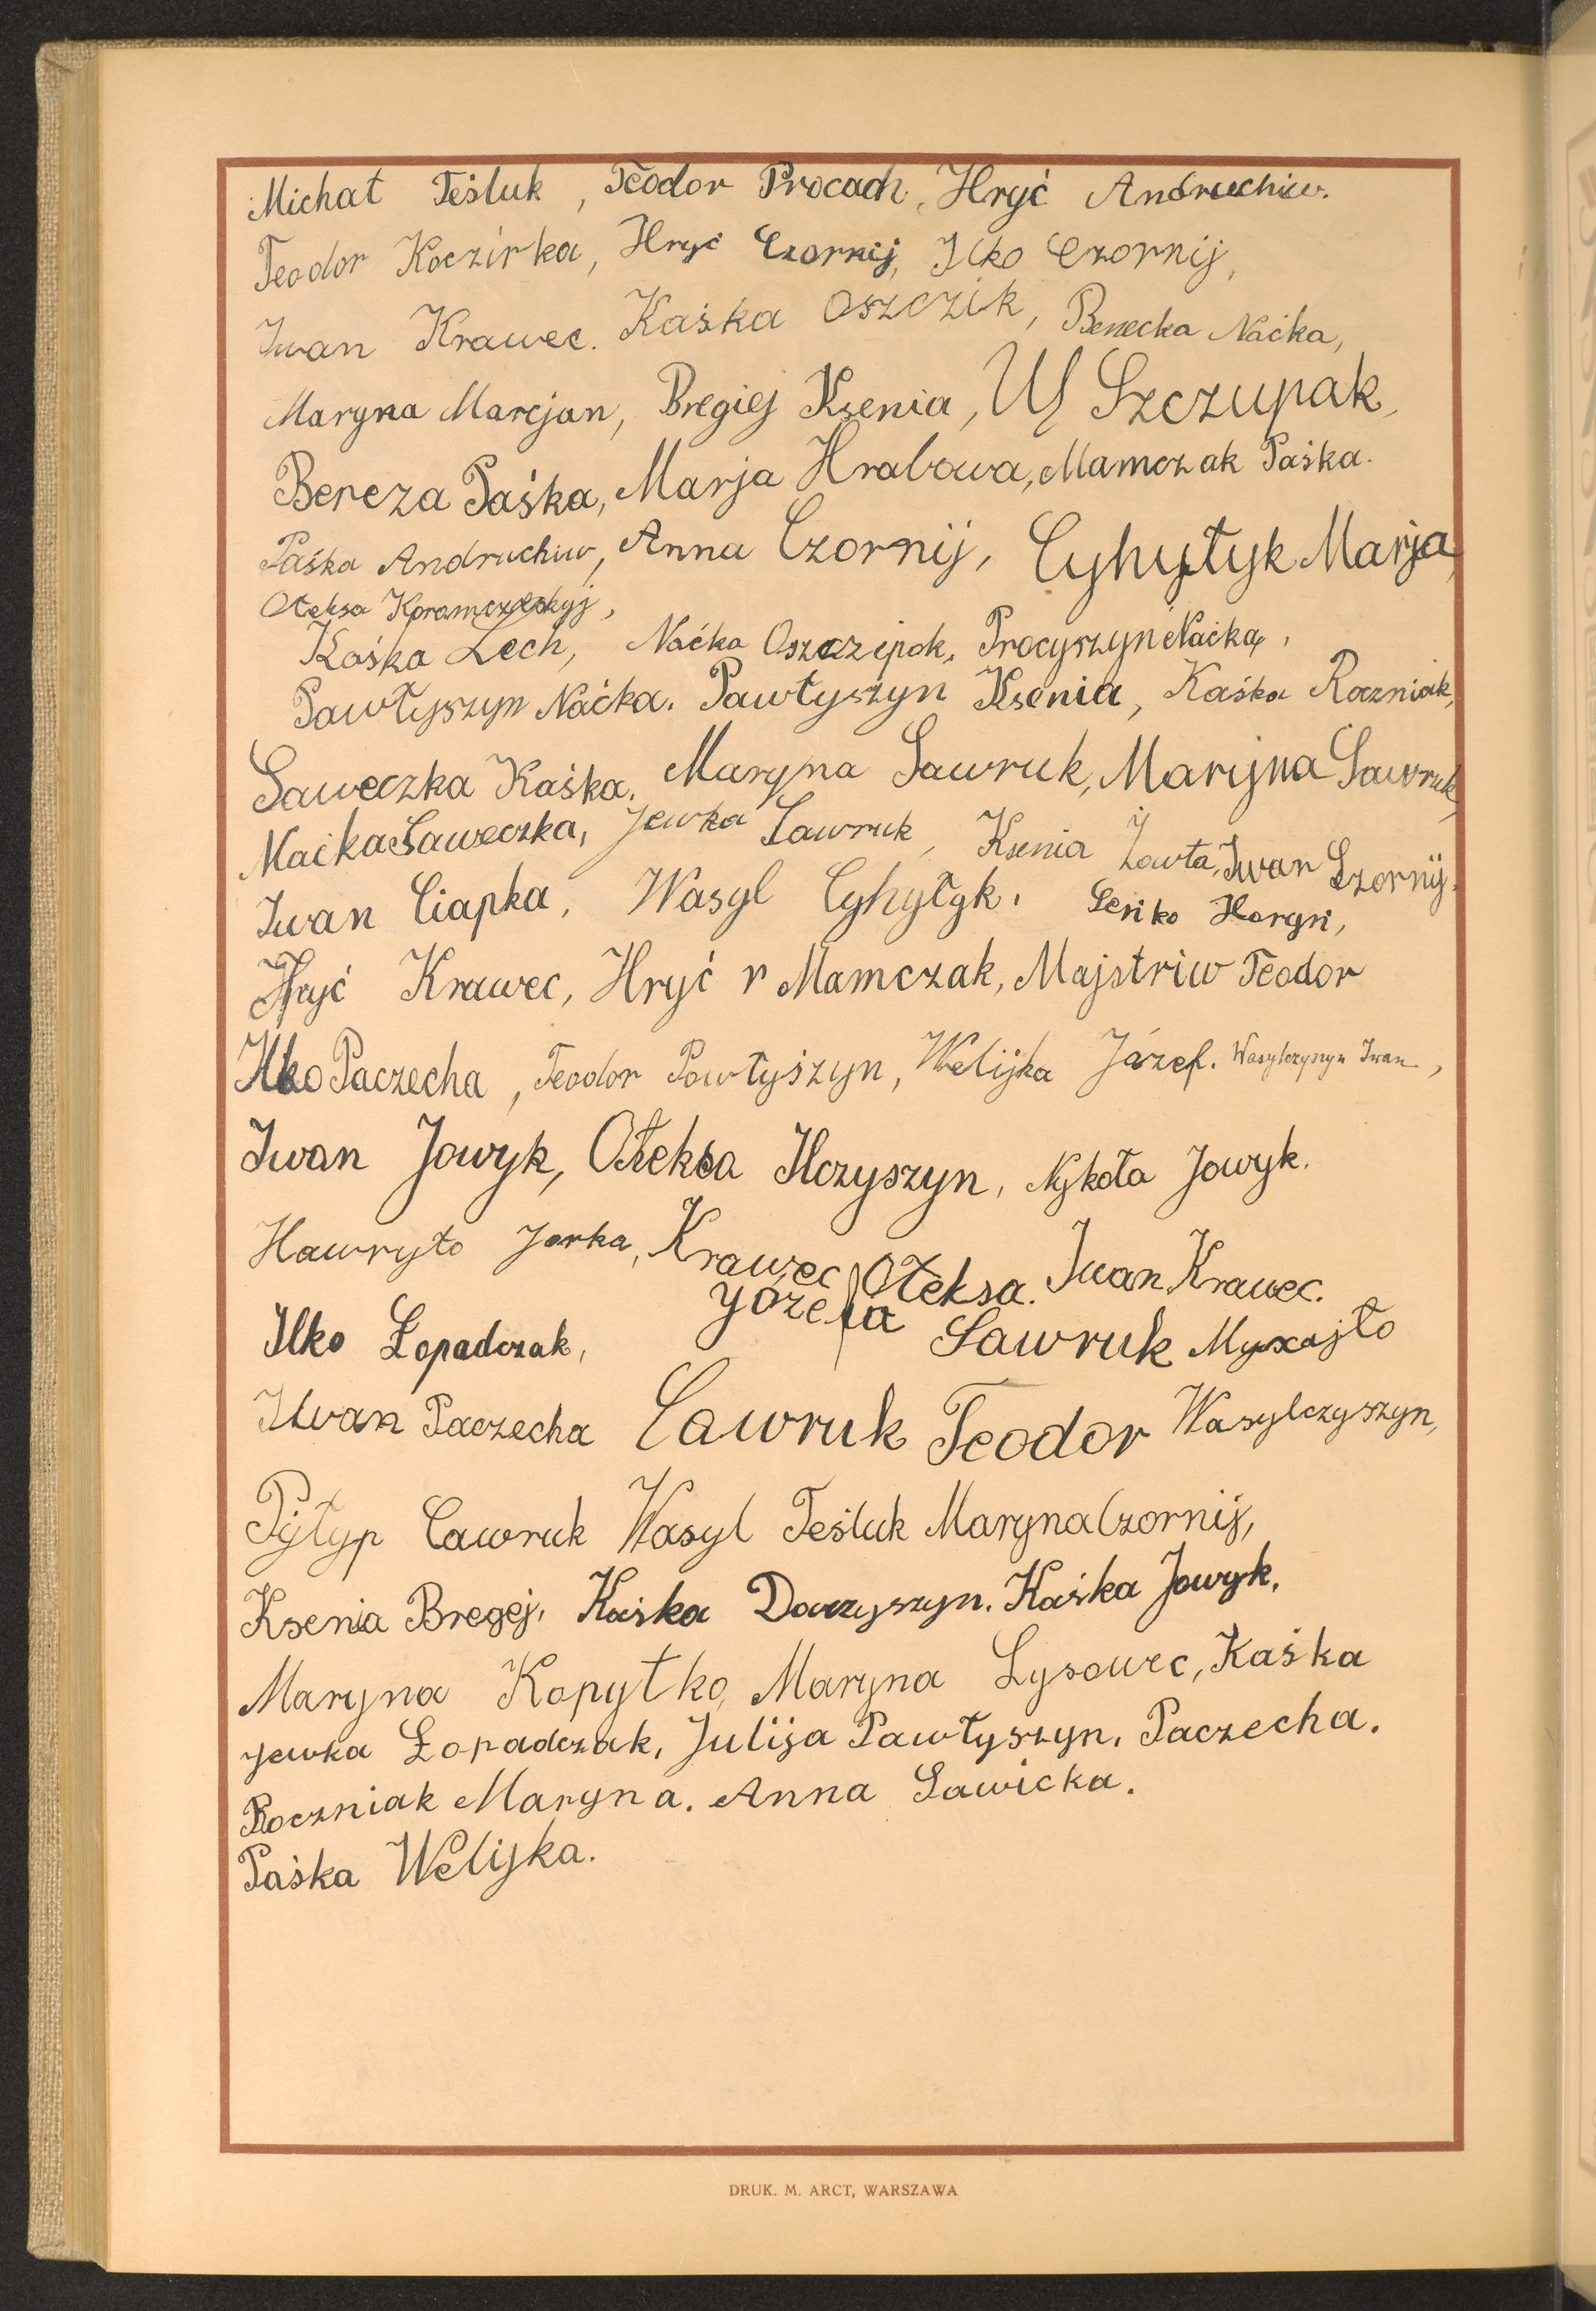 Michał Teśluk, Teodor Procach, Hryć Andruchiw.
Teodor Koczirka, Hryć Czornij, Ilko Czornij,
Iwan Krawec. Kaśka Oszczik, Benecka Naćka,
Maryna Marcjan, Bregiej Ksenia, Szczupak,
Bereza Paśka, Marja Hrabowa, Mamczak Paśka.
Paśka Andruchiw, Anna Czornij, Cyhyłyk Marja,
Ołeksa
Kaśka Lech, Naćka Oszczipok, Procyszyn Naćka,
Pawłyszyn Naćka. Pawłyszyn Ksenia, Kaśka Roczniak,
Saweczka Kaśka, Maryna Ławruk, Maryjna Ławruk,
Naćka Saweczka, Jewka Ławruk, Ksenia Żowta, Iwan Czornij.
Iwan Ciapka, Wasyl Cyhyłyk. Seńko Haryń,
Hryć Krawec, Hryć r Mamczak, Majstriw Teodor
Ilko Paczecha, Teodor Powłyszyn, Welijka Józef. Wasylczyszyn Iwan,
Iwan Jowyk, Ołeksa Ilczyszyn, Nykoła Jowyk.
Hawryło Jarka, Krawec Ołeksa. Iwan Krawec.
Ilko Łopadczak, Józefa Ławruk Myxajło
Iwan Paczecha Ławruk Teodor Wasylczyszyn,
Pyłyp Ławruk Wasyl Teśluk Maryna Czornij,
Ksenia Bregej, Kaśka Daczyszyn. Kaśka Jowyk,
Maryna Kopytko, Maryna Łysowec, Kaśka
Jewka Łopadczak, Julija Pawłyszyn, Paczecha.
Roczniak Maryna. Anna Sawicka.
Paśka Welijka.
DRUK. M. ARCT, WARSZAWA